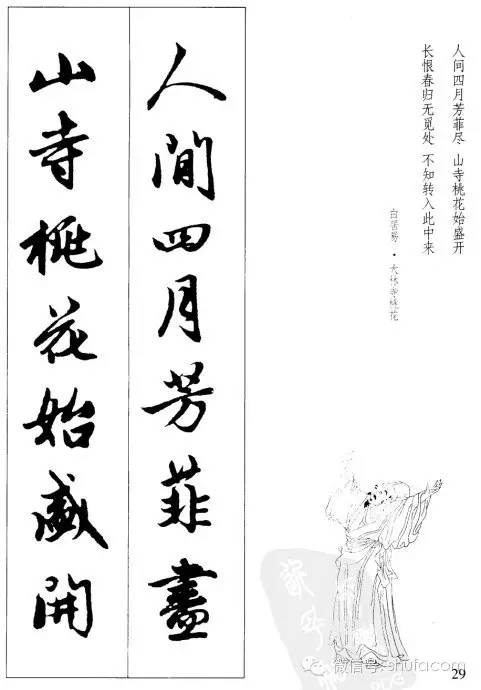 人間四月芳菲盡
山寺桃花始盛開
人间四月芳菲尽 山寺桃花始盛开
长恨春归无觅处 不知转入此中来
白居易·大林寺桃花
微信号: shufacom
29